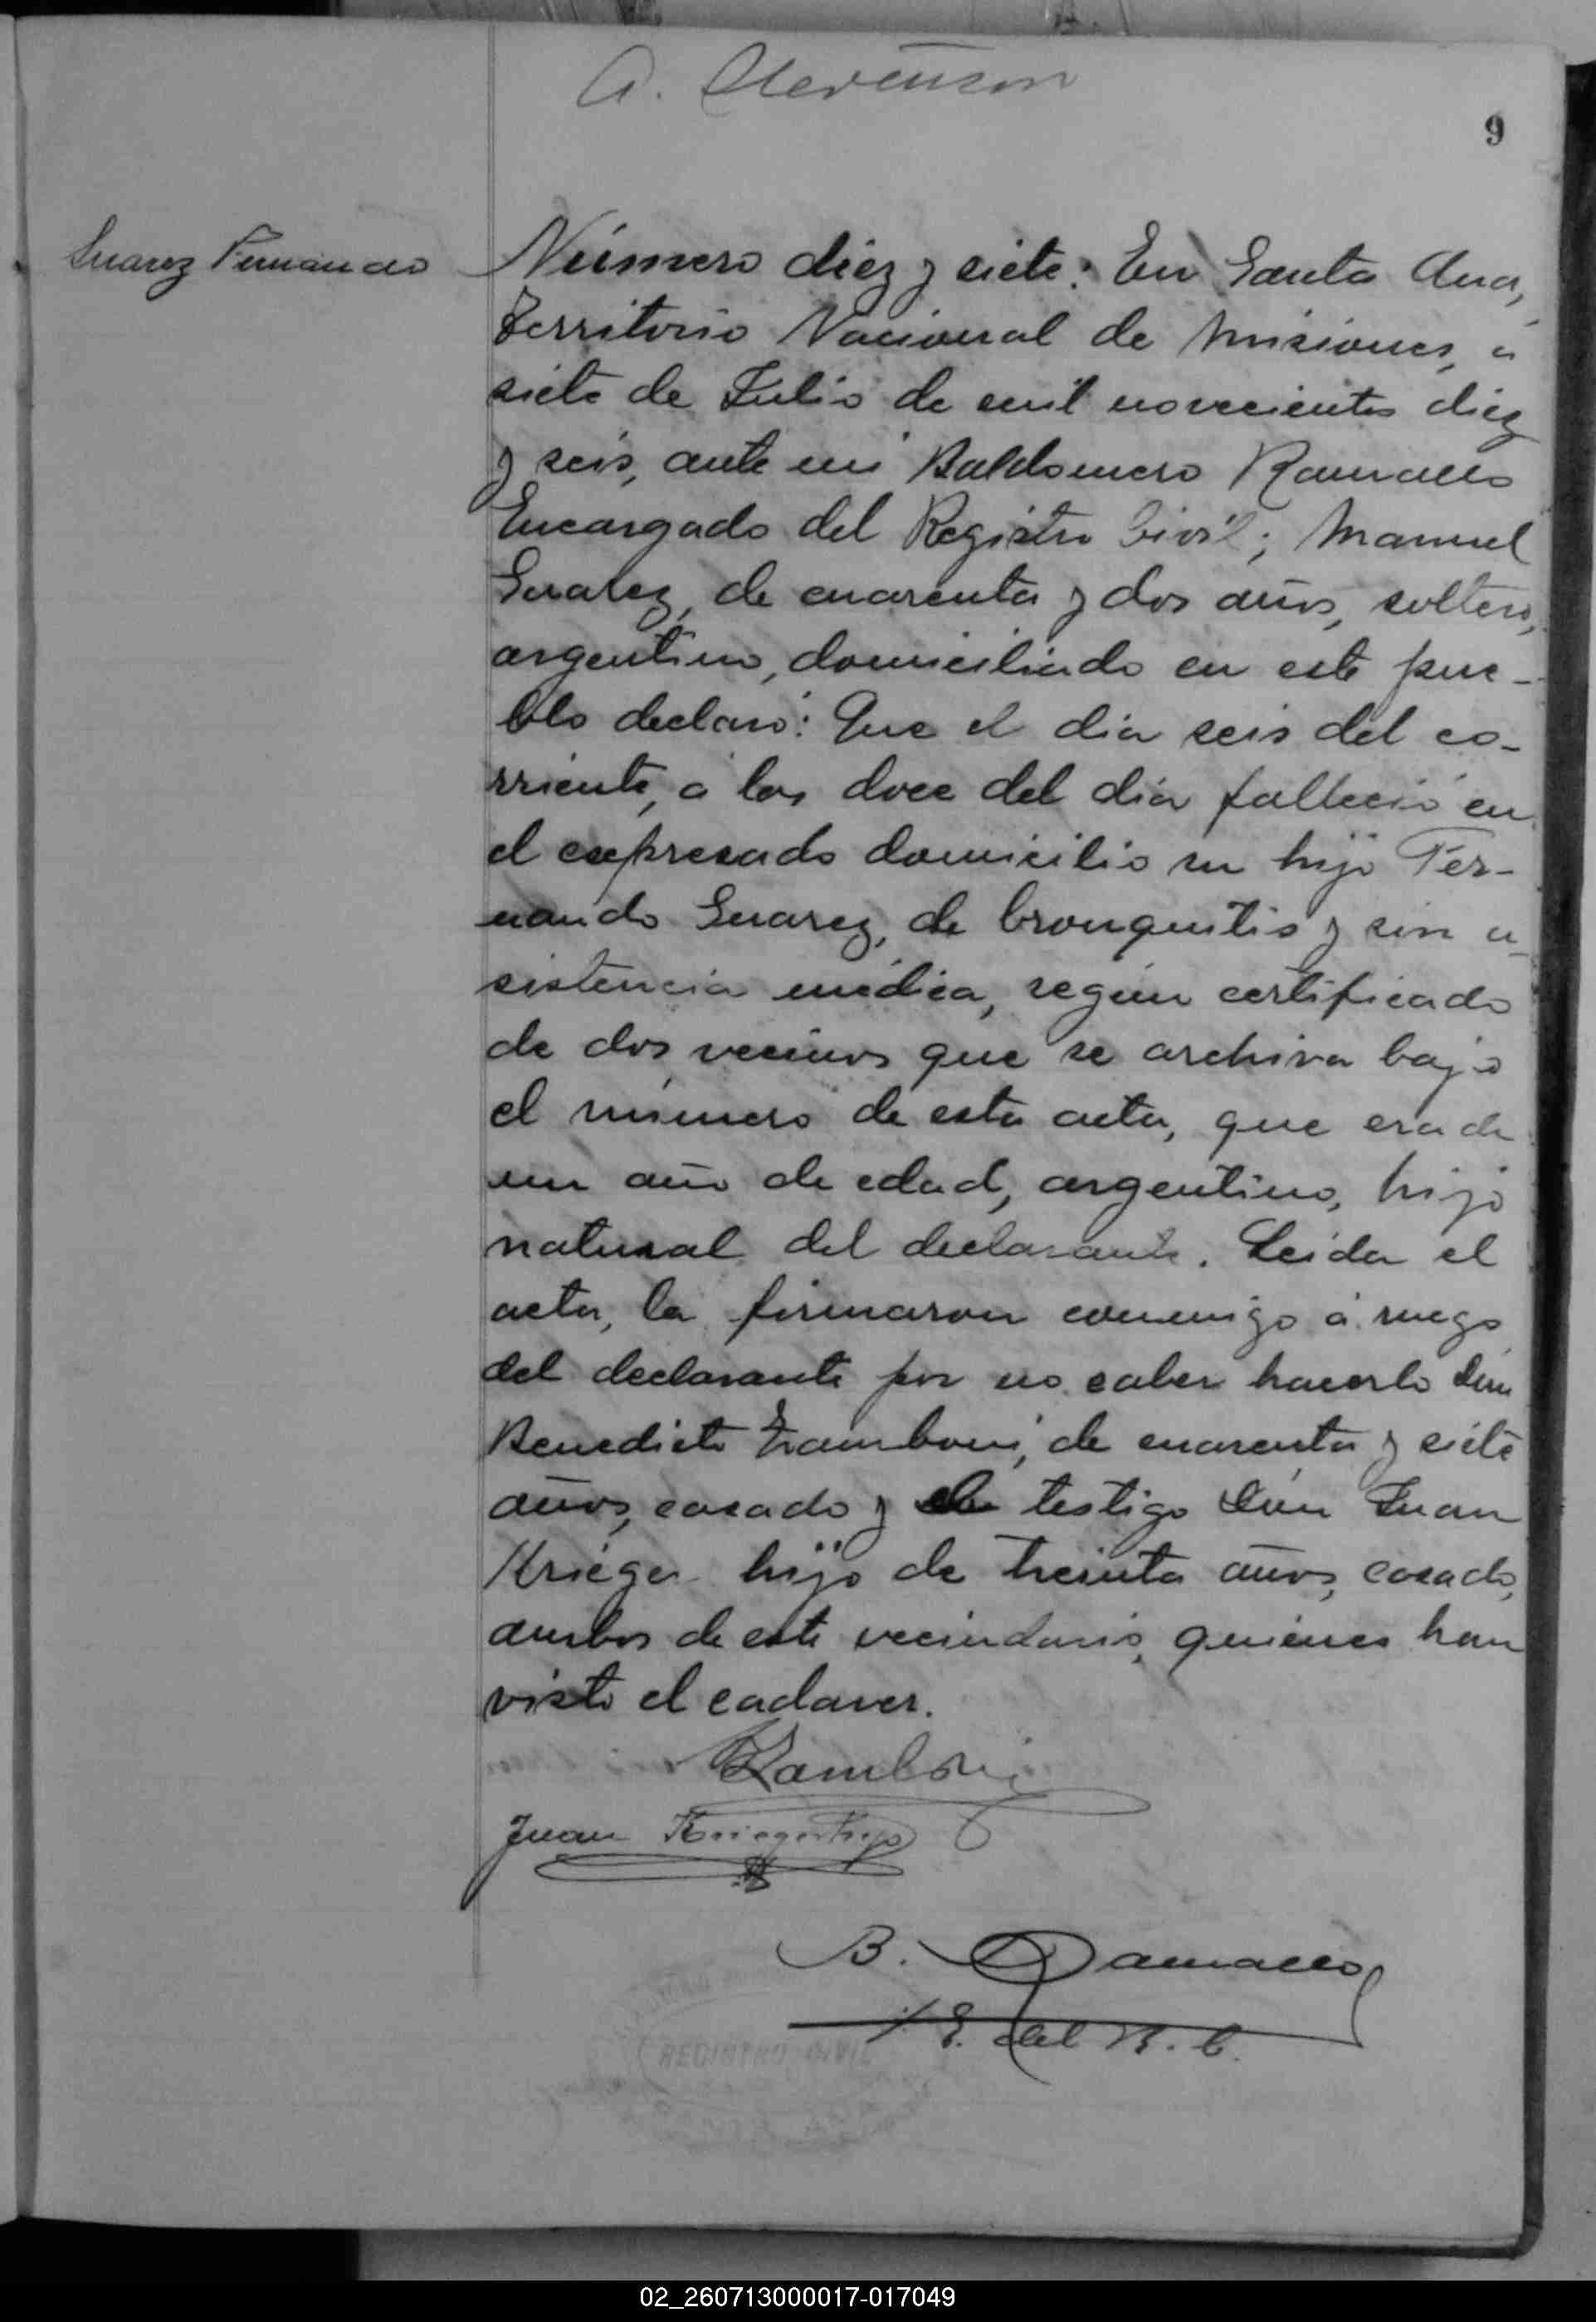 A. Stevenson
9
Suarez Fernando
Número diez y siete: En Santa Ana,
Territorio Nacional de Misiones, a
siete de Julio de mil novecientos diez
y seis, ante mi Baldomero Ramallo
Encargado del Registro Civil; Manuel
Suarez, de cuarenta y dos años, soltero,
argentino, domiciliado en este pue-
blo declaró: Que el dia seis del co-
rriente, a las doce del dia falleció en
el expresado domicilio su hijo Fer-
nando Suarez, de bronquitis y sin a-
sistencia médica, según certificado
de dos vecinos que se archiva bajo
el número de esta acta, que era de
un año de edad, argentino, hijo
natural del declarante. Leida el
acta, la firmaron conmigo á ruego
del declarante por no saber hacerlo Don
Benedicto Zamboni, de cuarenta y siete
años, casado y el testigo Don Juan
Krieger hijo de treinta años, casado,
ambos de este vecindario, quienes han
visto el cadaver.
BZamboni
Juan Krieger hijo
B. Ramallo
E. del R. C.
REGISTRO CIVIL
02_260713000017-017049